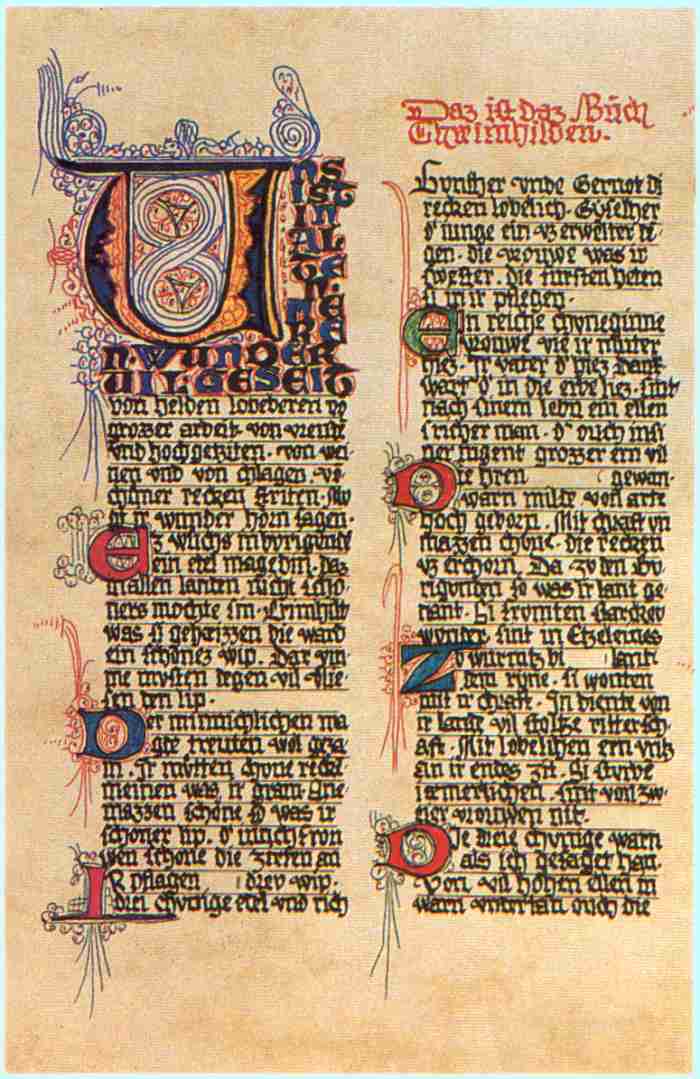 UNS
IST
IN
AL
TE
N·WUNDER
UIL·GESEIT
von helden lobeberen vo
grozzer arbeit· von vreude
vnd hochgeziten· von wei
nen vnd von chlagen· vo
chuner recken striten· Mv
ir wunder horn sagen·
Ez wuchs in burigunde
ein etel magedin· daz
in allen lanten nicht scho
ners mochte sin· Crimhilt
was si geheizzen die ward
ein schonez wip· Dar vm
me mvsten degen vil vlie
sen den lip·
Der minnichlichen ma
gde treuten wol geza
m· Ir mvtten chone recke
meinen was ir gram· ane
mazzen schone was ir
schoner lip· d' iunchfron
wen schone die zirten an
R pflagen drey wip·
I drei chvnige etel vnd rich
Daz ist daz Büch
Chreimhilden·
Gvnther vnde Gernot di
recken lobelich· Gyselher
d' iunge ein vz erwelter te
gen· die vrouwe was ir
swester· die fursten heten
si in ir pflegen·
Ein reiche chvneginne
vrouwe vte ir muter
hiez· Ir vater d' hiez Dank
wart d' in die erbe liez· sint
nach sinem lebn ein ellen
s richer man· d' ouch in si
ner iugent grozzer ern vil
Die hren gewan·
warn milte von arte
hoch geborn· Mit chraft vn
mazzen chune· die recken
vz erchorn· Da zv den Bv
rigunden so was ir lant ge
nant· Si frumten starckev
wunter· sint in Etzeleines
Zv wurmtz bi lant·
dem ryne· si wonten
mit ir chraft· In diente von
ir lande vil stoltze rittersch
aft· Mit lobelichen ern vntz
an ir endes zit· Si sturbe
iemerlichen· sint von zw
eier vrouwen nit·
Die dreie chvnige warn
als ich gesaget han·
Von vil hohen ellen in
warn vntertan ouch die